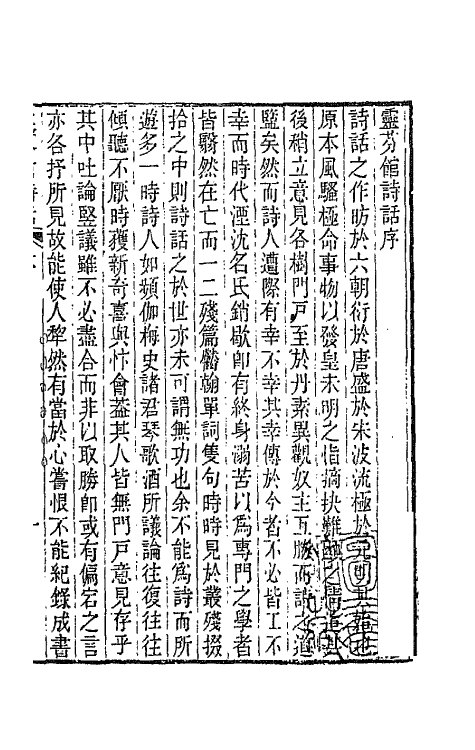 靈芬館詩話序
詩話之作昉於六朝衍於唐盛於宋波流極於元明其
原本風騷極命事物以發皇未明之恉摘抉難
後稍立意見各樹門戶至於丹素異觀奴主互勝而詩之道
盬矣然而詩人遭際有幸不幸其幸傳於今者不必皆工不
幸而時代湮沈名氏銷歇卽有終身溺苦以爲專門之學者
皆翳然在亡而一二殘篇賸翰單詞隻句時時見於叢殘掇
拾之中則詩話之於世亦未可謂無功也余不能爲詩而所
遊多一時詩人如頻伽梅史諸君琴歌酒所議論往復往往
傾聽不厭時獲新奇喜與忭會蓋其人皆無門戶意見存乎
其中吐論竪議雖不必盡合而非以取勝卽或有偏宕之言
亦各抒所見故能使人犂然有當於心嘗恨不能紀錄成書
一